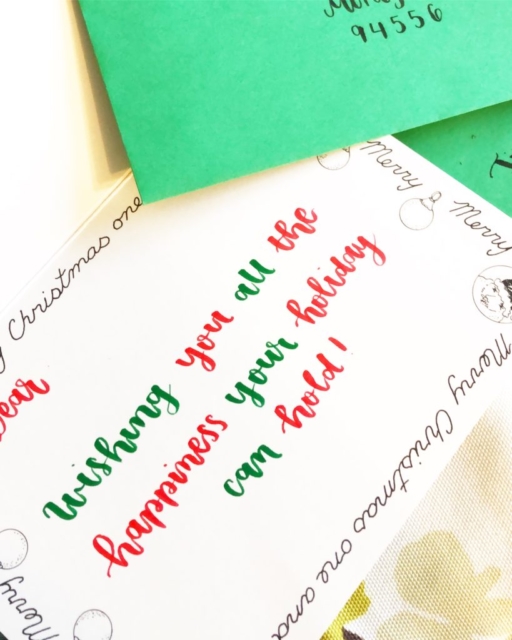 94556
Merry
Merry
Christmas one
Dear
wishing you all the
happiness your holiday
can hold!
Merry Christmas one and
Merry